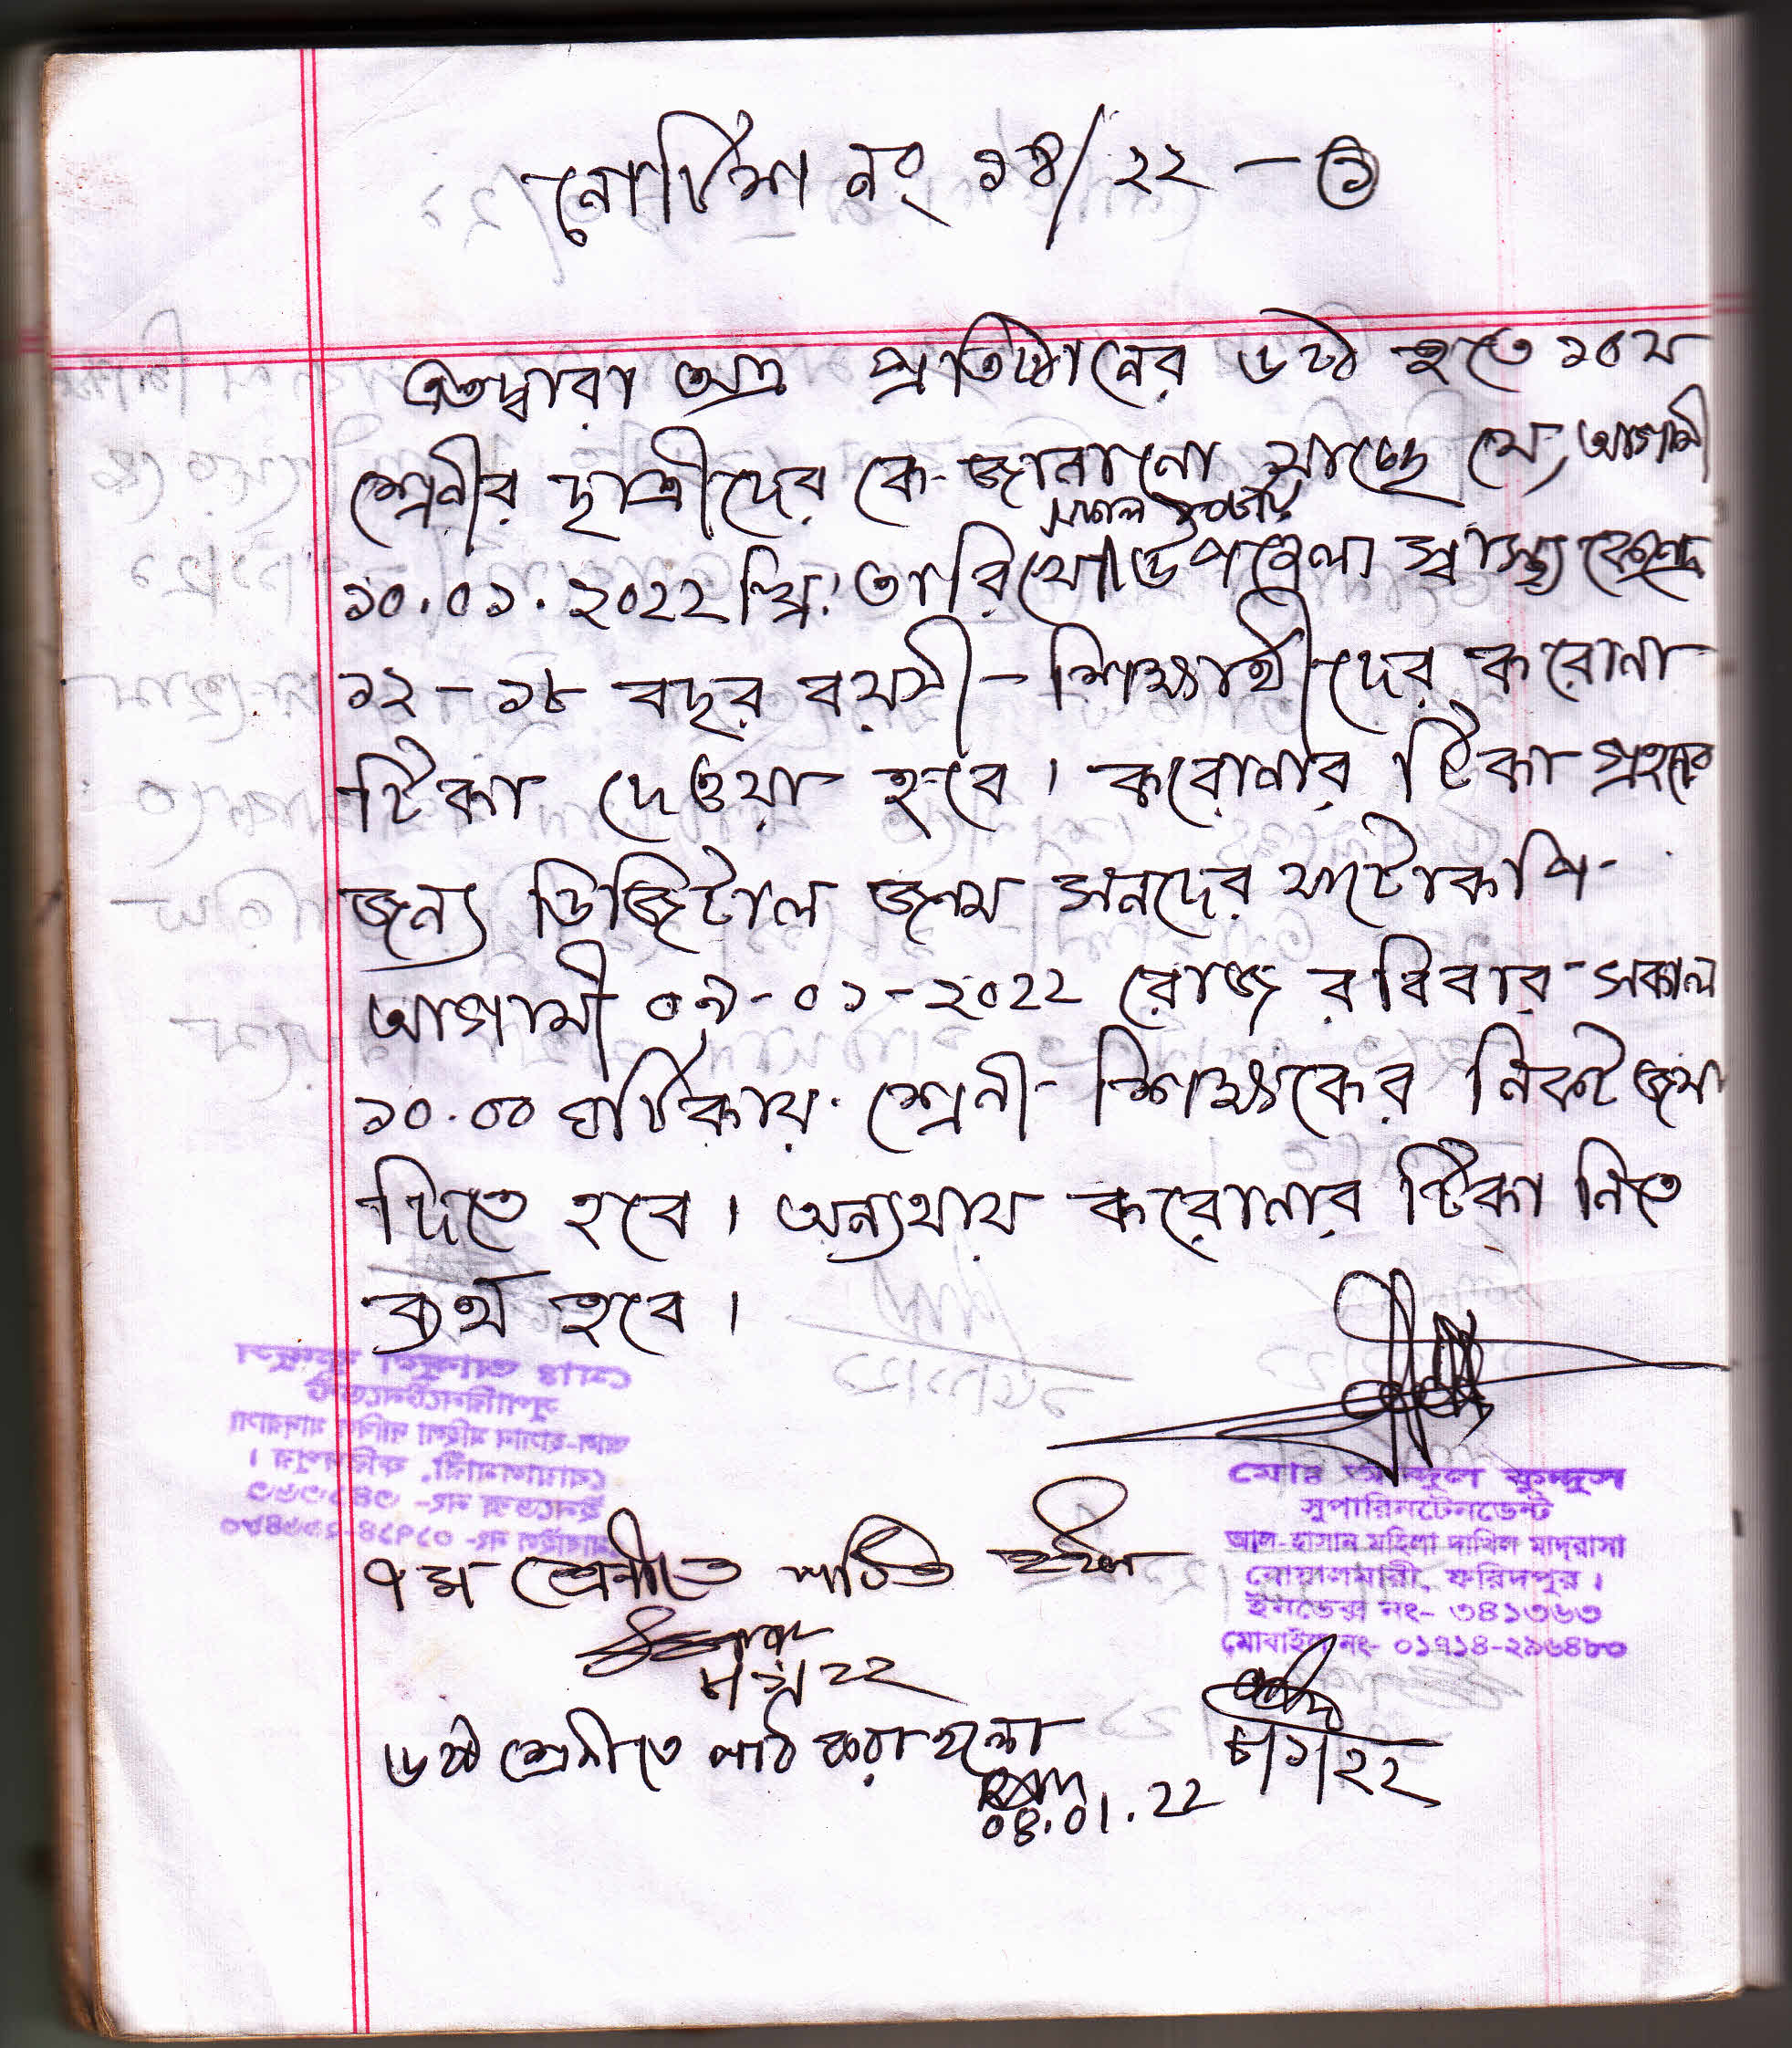 নোটিশ নং ১৪/২২ – ①
এতদ্বারা অত্র প্রতিষ্ঠানের ৬ষ্ঠ হতে ১০ম
শ্রেনীর ছাত্রীদের কে জানানো যাচ্ছে যে, আগামী
সকাল ১০টায়
১০.০১.২০২২ খ্রি: তারিখে উপজেলা স্বাস্থ্য কেন্দ্রে
১২ – ১৮ বছর বয়সী – শিক্ষার্থীদের করোনা
টিকা দেওয়া হবে। করোনার টিকা গ্রহনের
জন্য ডিজিটাল জন্ম সনদের ফটোকপি
আগামী ০৯-০১-২০২২ রোজ রবিবার সকাল
১০.০০ ঘটিকায় শ্রেনী শিক্ষকের নিকট জমা
দিতে হবে। অন্যথায় করোনার টিকা নিতে
ব্যর্থ হবে।
মোঃ আব্দুল কুদ্দুস
সুপারিনটেনডেন্ট
আল-হাসান মহিলা দাখিল মাদ্রাসা
বোয়ালমারী, ফরিদপুর।
ইনডেক্স নং- ৩৪১৩৬৩
মোবাইল নং- ০১৭১৪-২৯৬৪৮০
৭ম শ্রেনীতে পঠিত হইল
৬ষ্ঠ শ্রেনীতে পাঠ করা হলো
০৪.০১.22